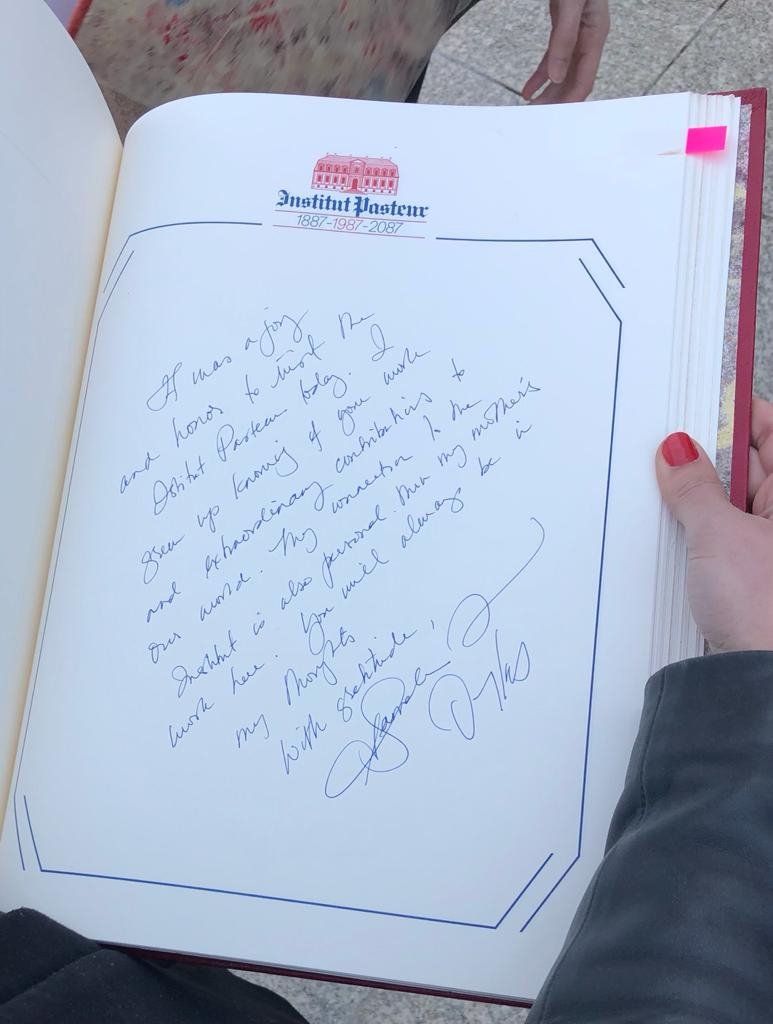 Institut Pasteur
1887-1987-2087
It was a joy
and honor to visit the
Institut Pasteur today. I
grew up knowing of your work
and extraordinary contributions to
our world. My connection to the
Institut is also personal thru my mother's
work here. You will always be in
my thoughts
With gratitude,